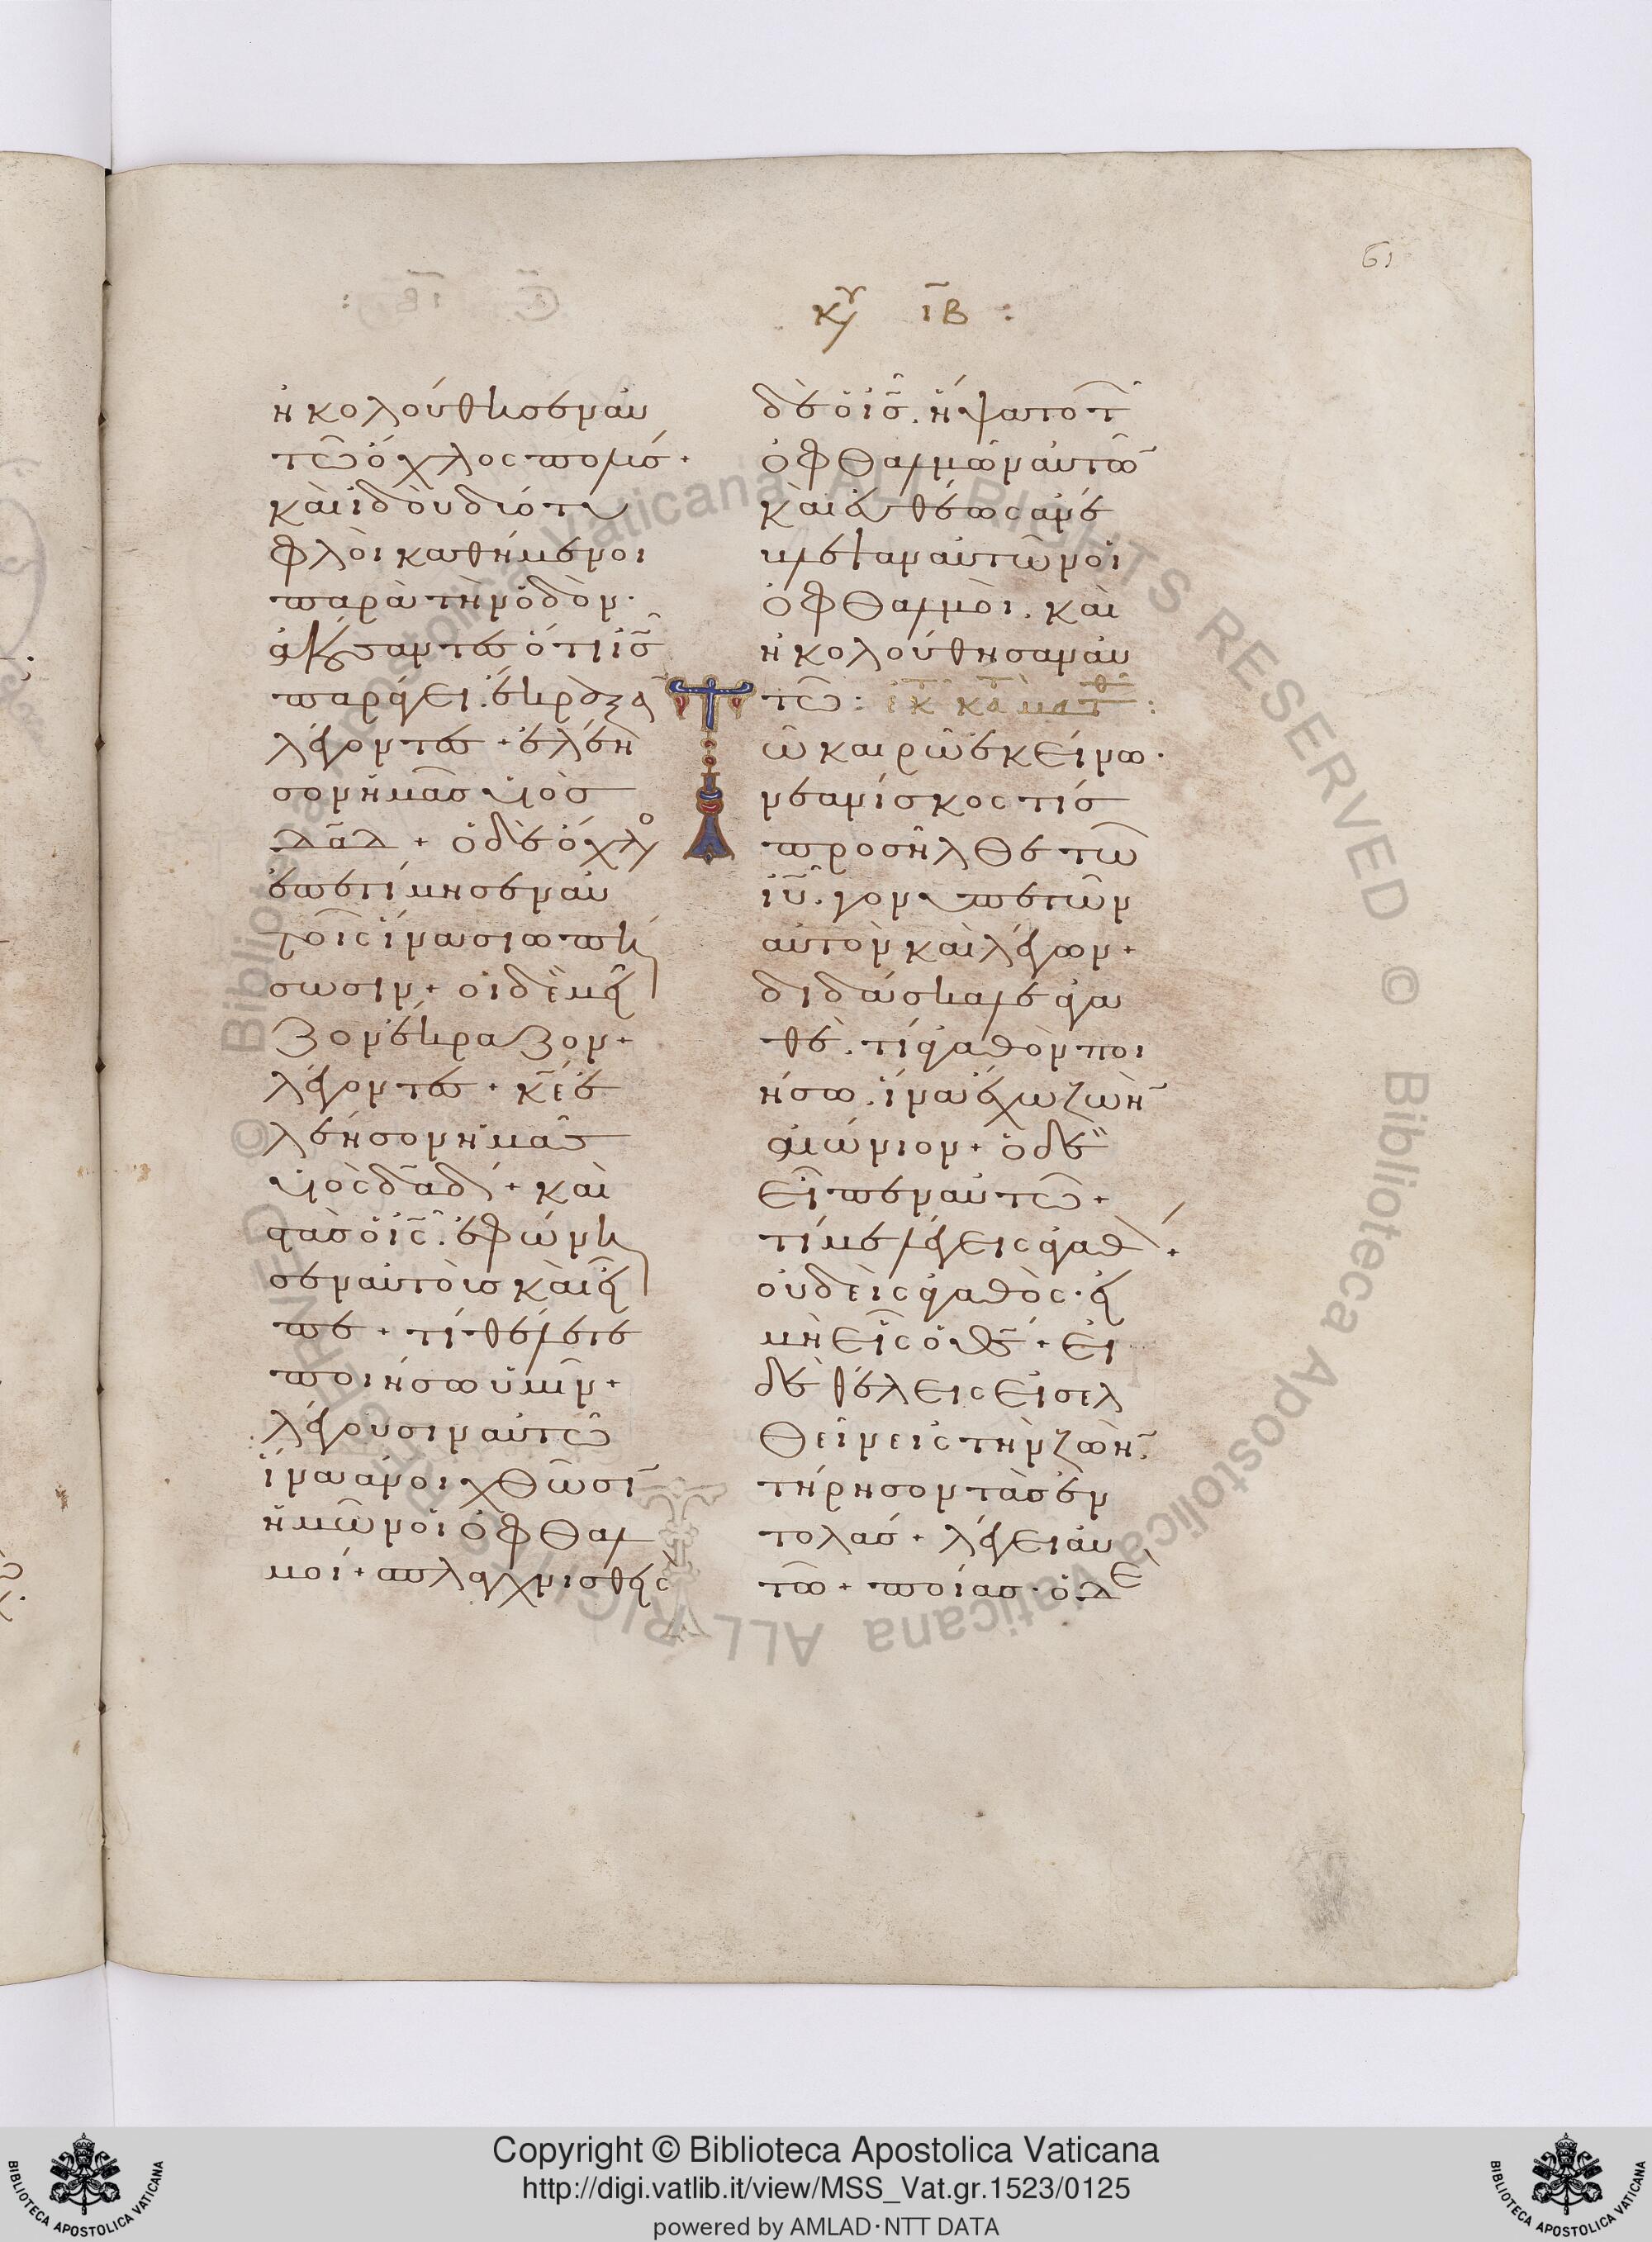 61
κυ ιβ :
ἠκολούθησεν αυ
τῶ ὄχλος πολύσ +
καὶ ἰδοὺ δύο τυ
φλοὶ καθήμενοι
παρὰ τὴν ὁδὸν·
ἀκούσαντεσ ὅτι ισ
παράγει. ἔκραξα
λέγοντεσ + ἐλέη
σον ἡμᾶσ υἱὸσ
δαδ + ὁ δὲ ὄχλο
ἐπετίμησεν αυ
τοῖς ἵνα σιωπή
σωσιν + οἱ δὲ μεῖ
ζον ἔκραζον +
λέγοντεσ + κε ἐ
λεήσον ἡμᾶσ
υἱὸς δαδ + καὶ
στὰσ ὁ ις. ἐφώνη
σεν αὐτοὺσ καὶ εἶ
πε + τί θέλετε
ποιήσω ὑμῖν +
λέγουσιν αὐτῶ
ἵνα ἀνοιχθῶσι
ἡμῶν οἱ ὀφθαλ
μοί + σπλαγχνισθεὶς
δὲ ὁ ισ. ἥψατο τ
ὀφθαλμῶν αὐτῶ
καὶ εὐθέως ἀνέ
βλεψαν αὐτῶν οἱ
ὀφθαλμοὶ. καὶ
ἠκολούθησαν αὐ
τῶ :
Τῶ καιρῶ ἐκείνω·
νεανίσκος τίσ
προσῆλθε τῶ
ιυ. γονυπετῶν
αὐτὸν καὶ λέγων +
διδάσκαλε ἀγα
θὲ. τί ἀγαθὸν ποι
ήσω. ἵνα ἔχω ζωὴ
αἰώνιον + ὁ δὲ
εἶπεν αὐτῶ +
τί με λέγεις ἀγαθ +
οὐδεὶς ἀγαθὸς· εἰ
μὴ εἷς ὁ θσ + εἰ
δὲ θέλεις εἰσελ
θεῖν εἰς τὴν ζωὴ.
τήρησον τὰσ ἐν
τολασ + λέγει αυ
τῶ + ποίασ· ὁ
Copyright © Biblioteca Apostolica Vaticana
http://digi.vatlib.it/view/MSS_Vat.gr.1523/0125
powered by AMLAD·NTT DATA
BIBLIOTECA APOSTOLICA VATICANA
BIBLIOTECA APOSTOLICA VATICANA
© Biblioteca Apostolica Vaticana ALL RIGHTS RESERVED © Biblioteca Apostolica Vaticana ALL RIGHTS RESERVED